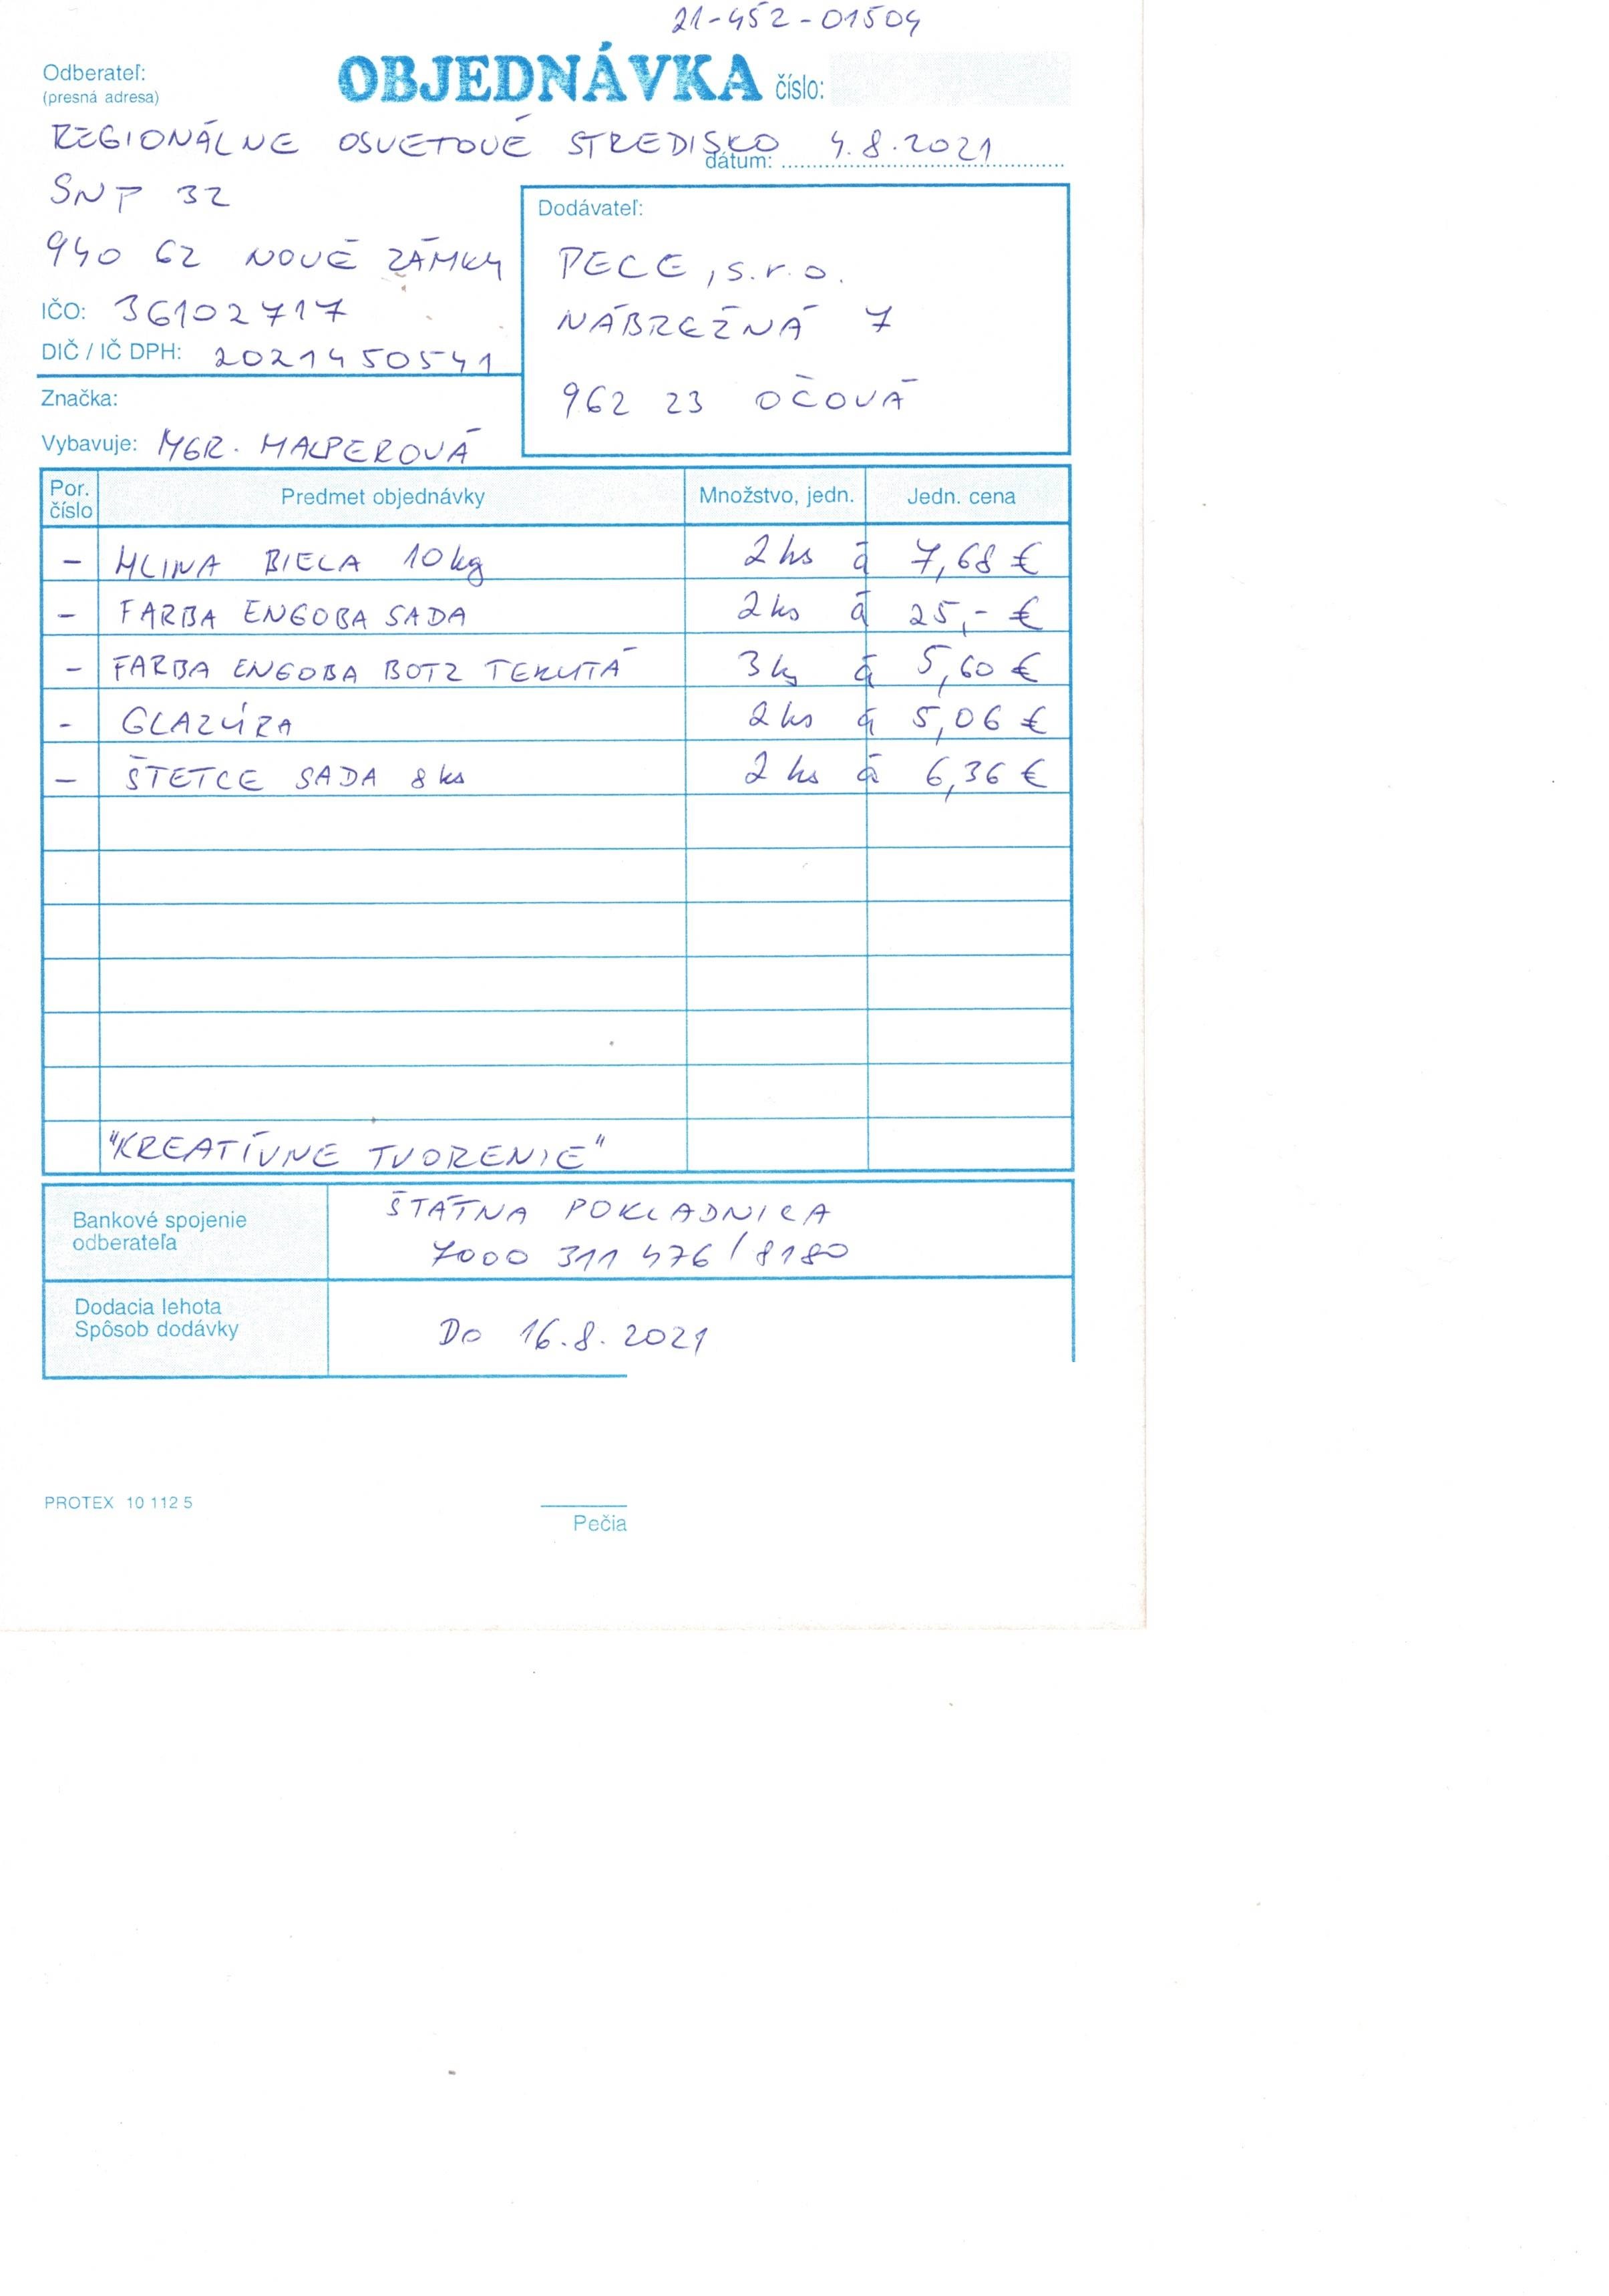 21-452-01504
Odberateľ:
(presná adresa)
OBJEDNÁVKA číslo:
REGIONÁLNE OSVETOVÉ STREDISKO
dátum: 4.8.2021
SNP 32
940 62 NOVÉ ZÁMKY
IČO: 36102717
DIČ / IČ DPH: 2021450541
Značka:
Vybavuje: MGR. MALPEROVÁ
Dodávateľ:
PECE, s.r.o.
NÁBREŽNÁ 7
962 23 OČOVÁ
Por. číslo Predmet objednávky Množstvo, jedn. Jedn. cena
- HLINA BIELA 10kg 2 ks á 7,68 €
- FARBA ENGOBA SADA 2 ks á 25,- €
- FARBA ENGOBA BOTZ TEKUTÁ 3 ks á 5,60 €
- GLAZÚRA 2 ks á 5,06 €
- ŠTETCE SADA 8 ks 2 ks á 6,36 €
"KREATÍVNE TVORENIE"
Bankové spojenie
odberateľa
ŠTÁTNA POKLADNICA
7000 311 476/8180
Dodacia lehota
Spôsob dodávky
DO 16.8.2021
PROTEX 10 112 5
Pečia